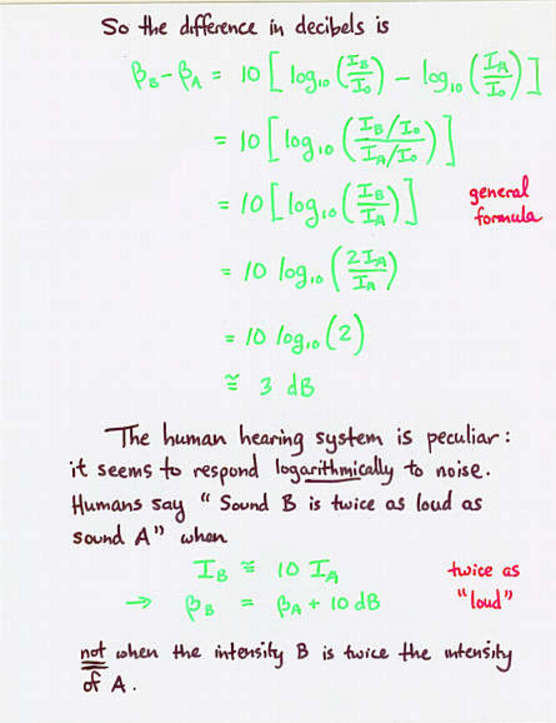 So the difference in decibels is
β_B - β_A = 10 [ log₁₀ (I_B/I₀) - log₁₀ (I_A/I₀) ]
= 10 [ log₁₀ ( (I_B/I₀) / (I_A/I₀) ) ]
= 10 [ log₁₀ (I_B/I_A) ] general formula
= 10 log₁₀ (2I_A/I_A)
= 10 log₁₀ (2)
≅ 3 dB
The human hearing system is peculiar:
it seems to respond logarithmically to noise.
Humans say "Sound B is twice as loud as
sound A" when
I_B ≅ 10 I_A twice as
→ β_B = β_A + 10 dB "loud"
not when the intensity B is twice the intensity
of A.